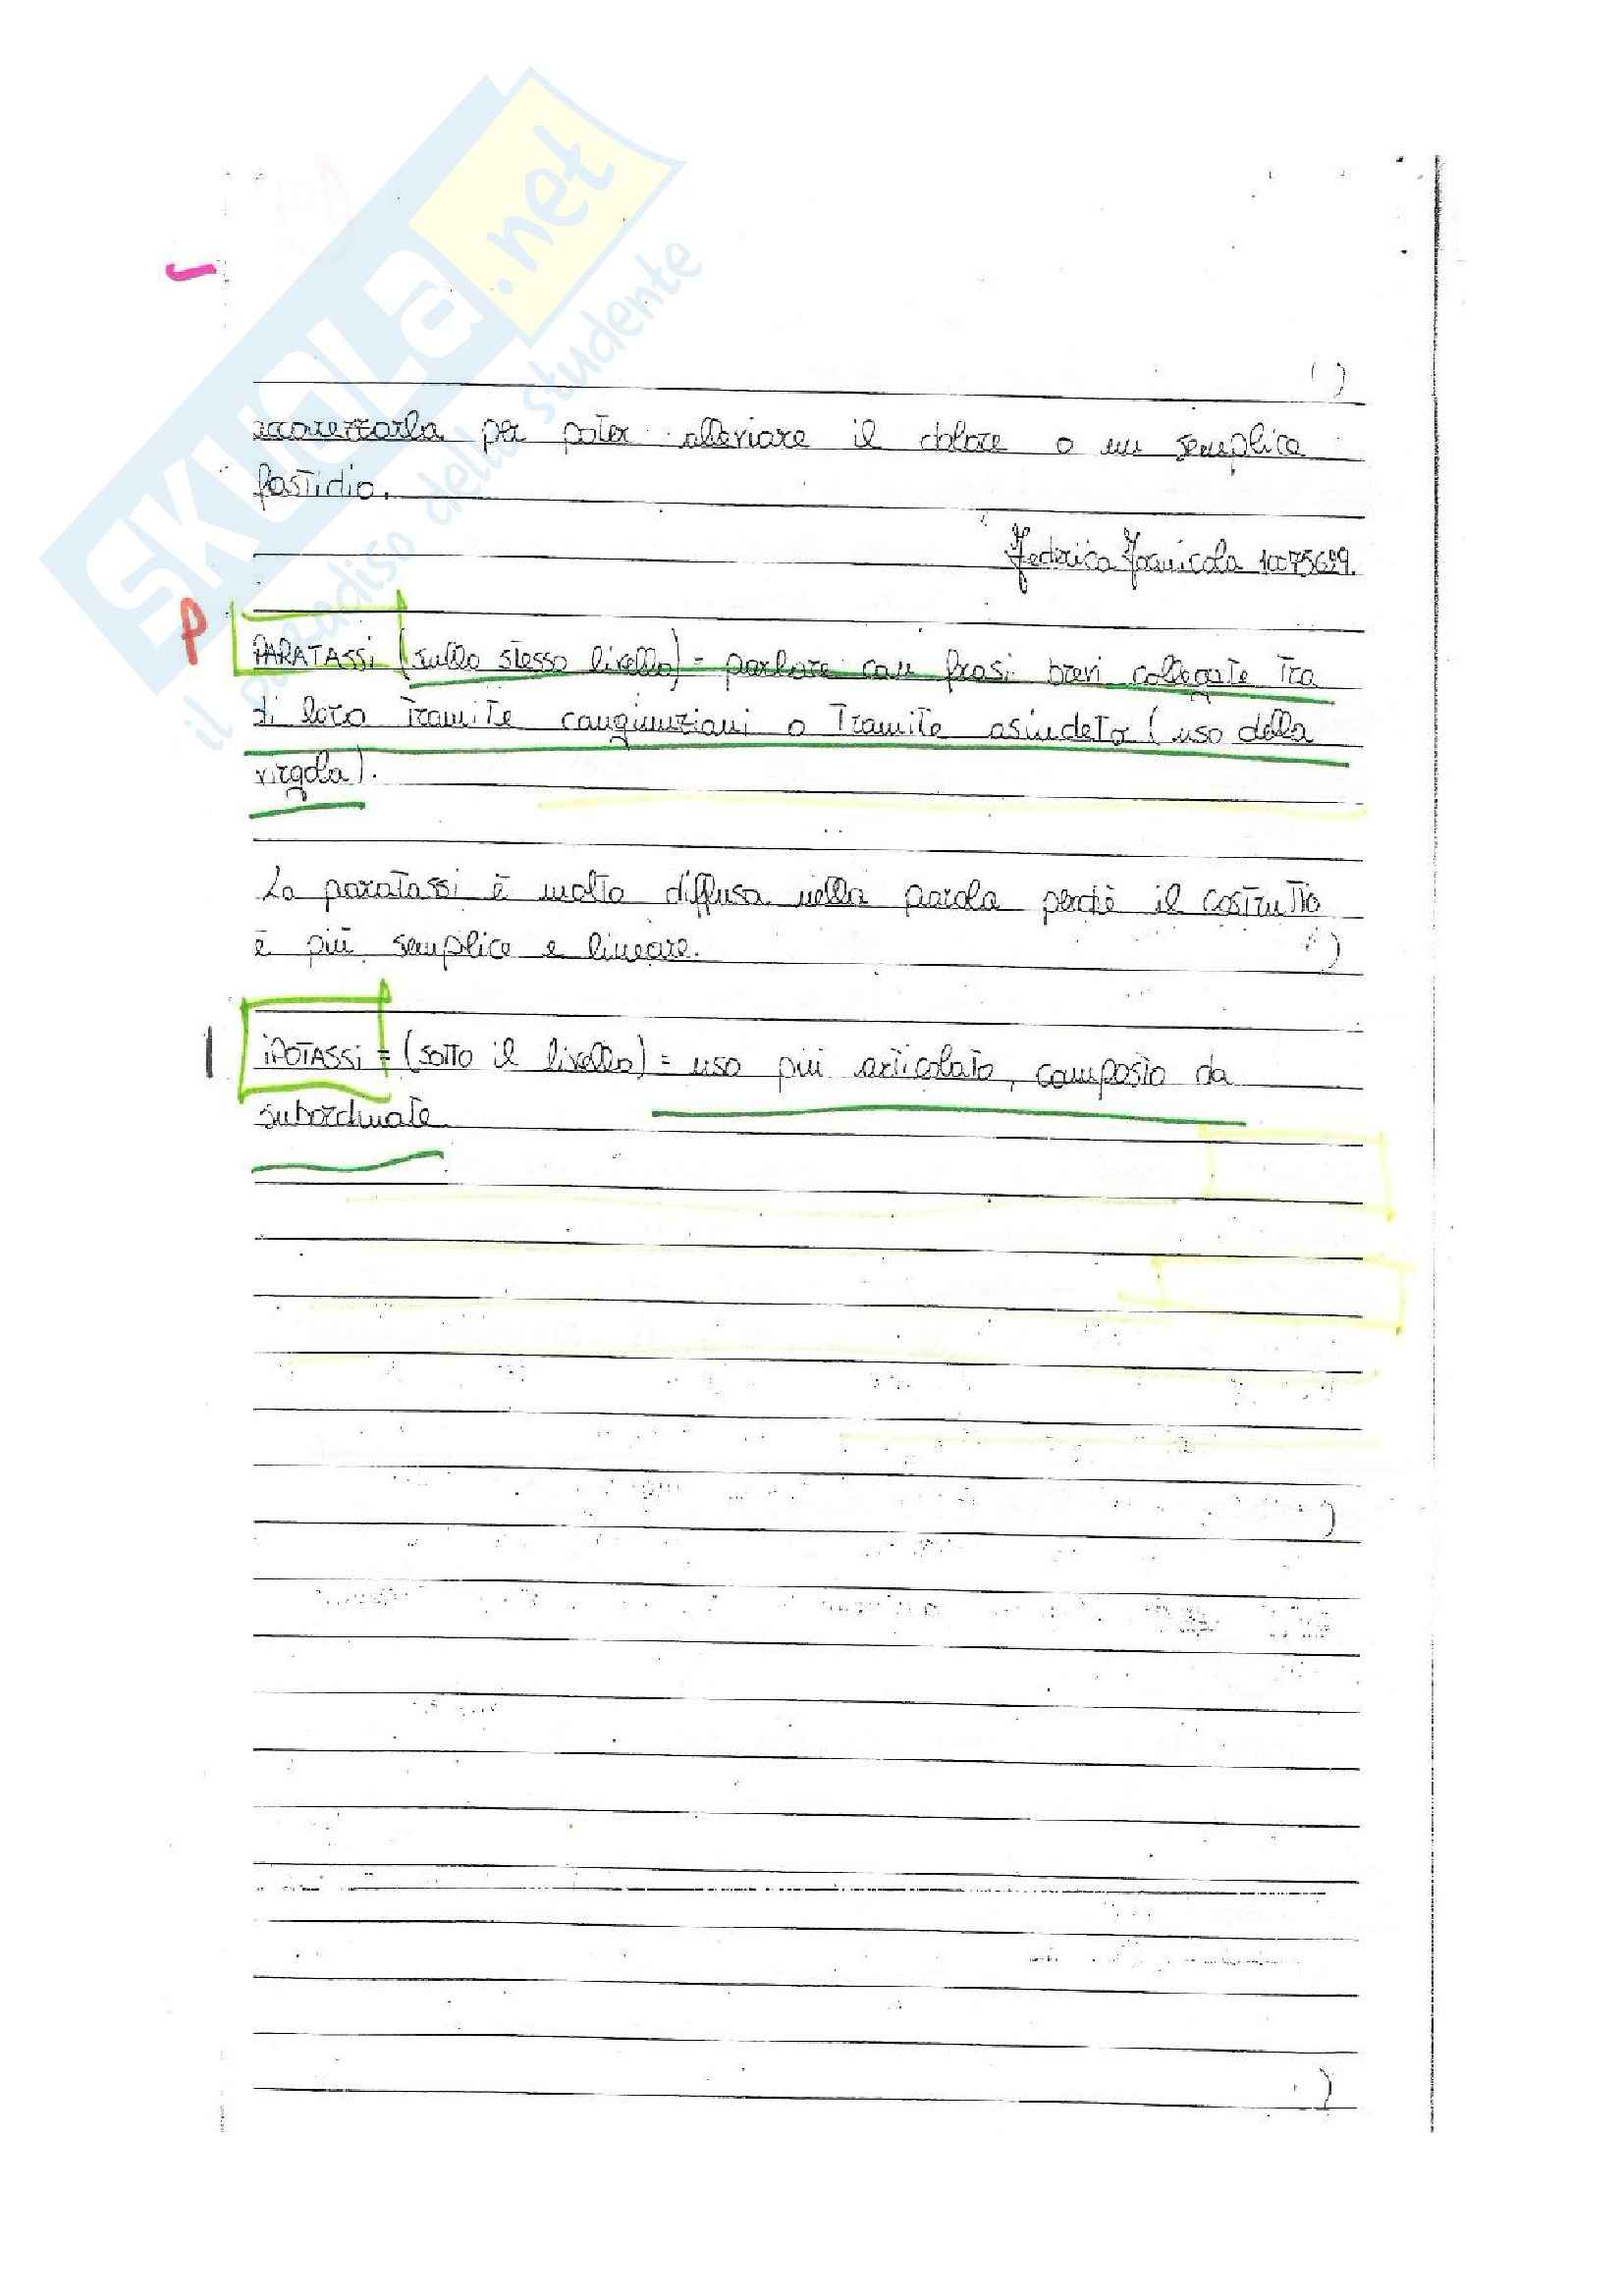 SKUOLA.net
il paradiso dello studente
accarezzarla per poter alleviare il dolore o un semplice
fastidio.
Federica
P
PARATASSI (sullo stesso livello) = parlare con frasi brevi collegate tra
di loro tramite congiunzioni o tramite asindeto (uso della
virgola).
La paratassi è molto diffusa nella parola perchè il costrutto
è più semplice e lineare.
IPOTASSI = (sotto il livello) = uso più articolato, composto da
subordinate